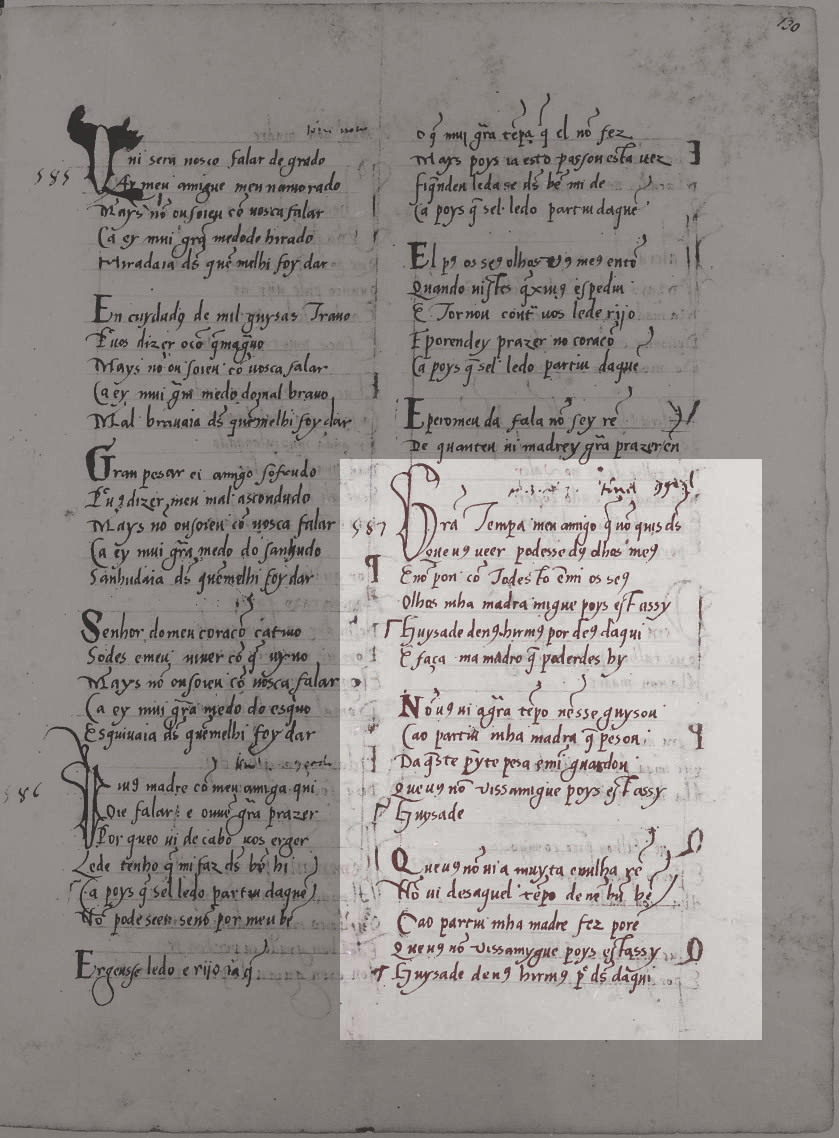 130
585
Ui sera uosco falar de grado
Ay meu amigue meu namorado
Mays nō ousoieu cō uosca falar
Ca ey mui grā medo do hirado
Hiradaia d's quē melhi foy dar
En cuydado de mil guysas
Pʳ uos dizer
Mays nō ousoieu cō uosca falar
Ca ey mui grā medo do mal brauo
Mal brauaia d's quēmelhi foy dar
Gran pesar ei amigo sofrendo
Pʳ uꝯ dizer meu mal ascondudo
Mays nō ousoieu cō uosca falar
Ca ey mui grā medo do sanhudo
Sanhudaia d's quēmelhi foy dar
Senhor do meu coracō catiuo
Sodes emeu uiuer cō q̄ uyuo
Mays nō ousoieu cō uosca falar
Ca ey mui grā medo do esquo
Esquiuaia d's quēmelhi foy dar
586
madre cō meu amiga qui
Oie falar e ouue grā prazer
Por queo ui de cabo uos erger
Lede tenho q̄ mi faz d's bē hi
Ca poys q̄ sel ledo partiu daquē
Nō pode seer senō por meu bē
Ergensse ledo e rijo ia q̄
o q̄ mui grā tēpa q̄ el nō fez
Mays poys ia esto passou esta uez
fiq̄nden ledase d's bē mi de
Ca poys q̄ sel ledo partiu daquē
El pꝯ os seꝯ olhos nꝯ meꝯ entō
Quando uistes espediu
E Tornou cont uos lede rijo
E porendey prazer no coracō
Ca poys q̄ sel ledo partiu daquē
E pero meu da fala nō sey rē
De quanteu ui madrey grā prazer en
587
Grā Tempa meu amigo q̄ nō quis d's
Que uꝯ ueer podesse dꝯ olhos meꝯ
E nō pon cō Todesto ēmi os seꝯ
Olhos mha madra migue poys est assy
Guysade denꝯ hirmꝯ por deꝯ daqui
E faça ma madro q̄ poderdes hy
Nō uꝯ ui a grā tēpo nē sse guysou
Cao partiu mha madra q̄ pesou
Da q̄ste pʳyte pesa ēmi guardou
Que uꝯ nō uissamigue poys est assy
Guysade
Que uꝯ nō uia muyta eoulha rē
Nō ui desaquel tēpo denē hū bē
Cao partiu mha madre fez porē
Que uꝯ nō uissamygue poys est assy
Guysade denꝯ hirmꝯ pʳ d's daqui